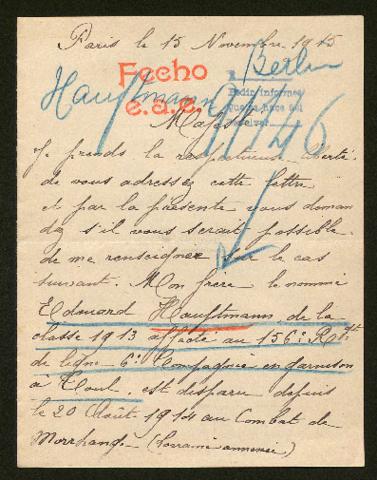 Paris le 15 Novembre 1915
Fecho
e.a.e.
Berlin
Pedir informes
Hauftmann
Majesté
Je prends la respectueuse liberté
de vous adresser cette lettre
et par la présente vous deman
der s'il vous serait possible
de me renseigner sur le cas
suivant. Mon frère le nommé
Edouard Hauftmann de la
classe 1913 affecté au 156e Rgt
de ligne 6e Compagnie en garnison
à Toul. est disparu depuis
le 20 Août 1914 au Combat de
Morrhange (Lorraine annexée)